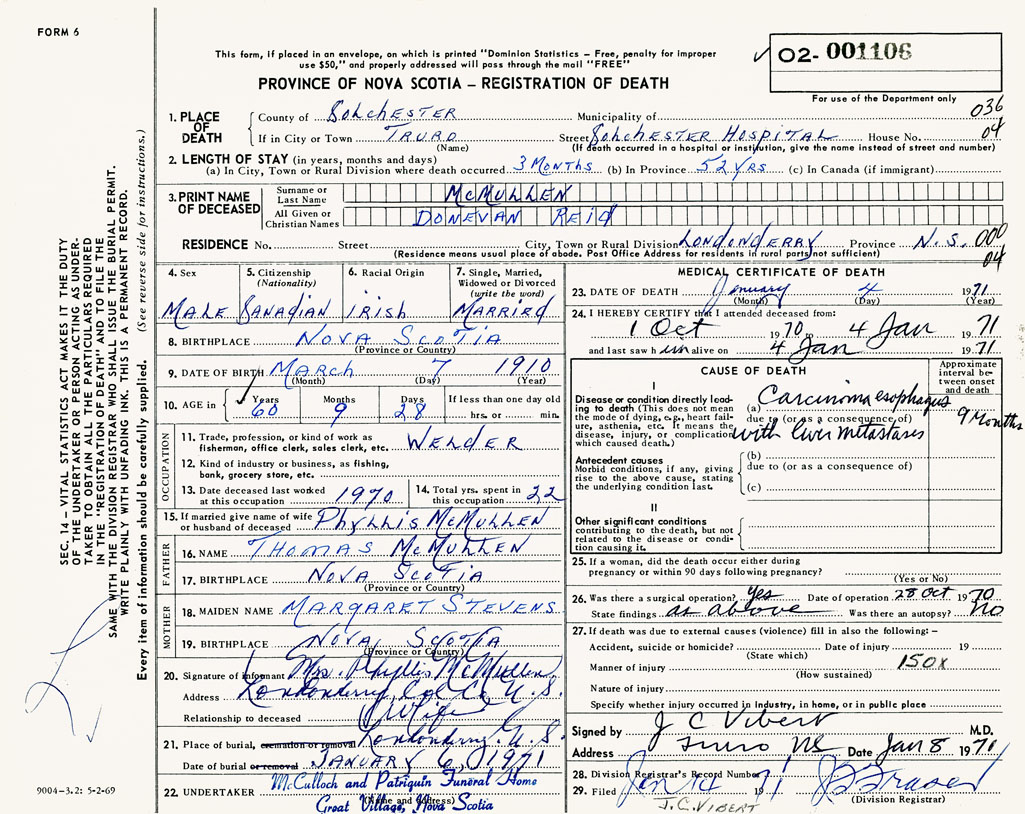 FORM 6
This form, if placed in an envelope, on which is printed "Dominion Statistics – Free, penalty for improper
use $50," and properly addressed will pass through the mail "FREE"
O2- 001106
For use of the Department only
PROVINCE OF NOVA SCOTIA – REGISTRATION OF DEATH
036
04
1. PLACE OF DEATH
County of Colchester Municipality of
If in City or Town Truro Street Colchester Hospital House No.
(Name) (If death occurred in a hospital or institution, give the name instead of street and number)
2. LENGTH OF STAY (in years, months and days)
(a) In City, Town or Rural Division where death occurred 3 Months (b) In Province 52 yrs (c) In Canada (if immigrant)
3. PRINT NAME OF DECEASED
Surname or Last Name McMULLEN
All Given or Christian Names DONEVAN REID
RESIDENCE No. Street City, Town or Rural Division Londonderry Province N.S. 000
04
(Residence means usual place of abode. Post Office Address for residents in rural parts not sufficient)
4. Sex
MALE
5. Citizenship
(Nationality)
Canadian
6. Racial Origin
Irish
7. Single, Married,
Widowed or Divorced
(write the word)
Married
8. BIRTHPLACE Nova Scotia
(Province or Country)
9. DATE OF BIRTH March 7 1910
(Month) (Day) (Year)
10. AGE in
Years Months Days If less than one day old
60 9 28 hrs. or min.
OCCUPATION
11. Trade, profession, or kind of work as
fisherman, office clerk, sales clerk, etc. Welder
12. Kind of industry or business, as fishing,
bank, grocery store, etc.
13. Date deceased last worked
at this occupation 1970
14. Total yrs. spent in
this occupation 22
15. If married give name of wife
or husband of deceased Phyllis McMullen
FATHER
16. NAME Thomas McMullen
17. BIRTHPLACE Nova Scotia
(Province or Country)
MOTHER
18. MAIDEN NAME Margaret Stevens
19. BIRTHPLACE Nova Scotia
(Province or Country)
20. Signature of informant Mrs. Phyllis McMullen
Address Londonderry Col Co N.S.
Relationship to deceased Wife
21. Place of burial, cremation or removal Londonderry N.S.
Date of burial or removal January 6, 1971
22. UNDERTAKER McCulloch and Patriquin Funeral Home
(Name and Address)
Great Village, Nova Scotia
MEDICAL CERTIFICATE OF DEATH
23. DATE OF DEATH January 4 1971
(Month) (Day) (Year)
24. I HEREBY CERTIFY that I attended deceased from:
1 Oct 1970 to 4 Jan 1971
and last saw him alive on 4 Jan 1971
CAUSE OF DEATH
Approximate
interval be-
tween onset
and death
I
Disease or condition directly lead-
ing to death (This does not mean
the mode of dying, e.g., heart fail-
ure, asthenia, etc. It means the
disease, injury, or complication
which caused death.)
(a) Carcinoma esophagus
due to (or as a consequence of)
with liver metastases
9 Months
Antecedent causes
Morbid conditions, if any, giving
rise to the above cause, stating
the underlying condition last.
(b)
due to (or as a consequence of)
(c)
II
Other significant conditions
contributing to the death, but not
related to the disease or condi-
tion causing it.
25. If a woman, did the death occur either during
pregnancy or within 90 days following pregnancy?
(Yes or No)
26. Was there a surgical operation? Yes Date of operation 28 Oct 1970
State findings as above Was there an autopsy? No
27. If death was due to external causes (violence) fill in also the following: –
Accident, suicide or homicide? Date of injury 19
(State which)
150X
Manner of injury
(How sustained)
Nature of injury
Specify whether injury occurred in industry, in home, or in public place
Signed by J C Vibert M.D.
Address Truro NS Date Jan 8 1971
28. Division Registrar's Record Number
29. Filed Jan 14 71
(Division Registrar)
J.C. VIBERT
SEC. 14 – VITAL STATISTICS ACT MAKES IT THE DUTY
OF THE UNDERTAKER OR PERSON ACTING AS UNDER-
TAKER TO OBTAIN ALL THE PARTICULARS REQUIRED
IN THE "REGISTRATION OF DEATH" AND TO FILE THE
SAME WITH THE DIVISION REGISTRAR WHO SHALL ISSUE THE BURIAL PERMIT.
WRITE PLAINLY WITH UNFADING INK. THIS IS A PERMANENT RECORD.
Every item of information should be carefully supplied. (See reverse side for instructions.)
9004-3.2: 5-2-69